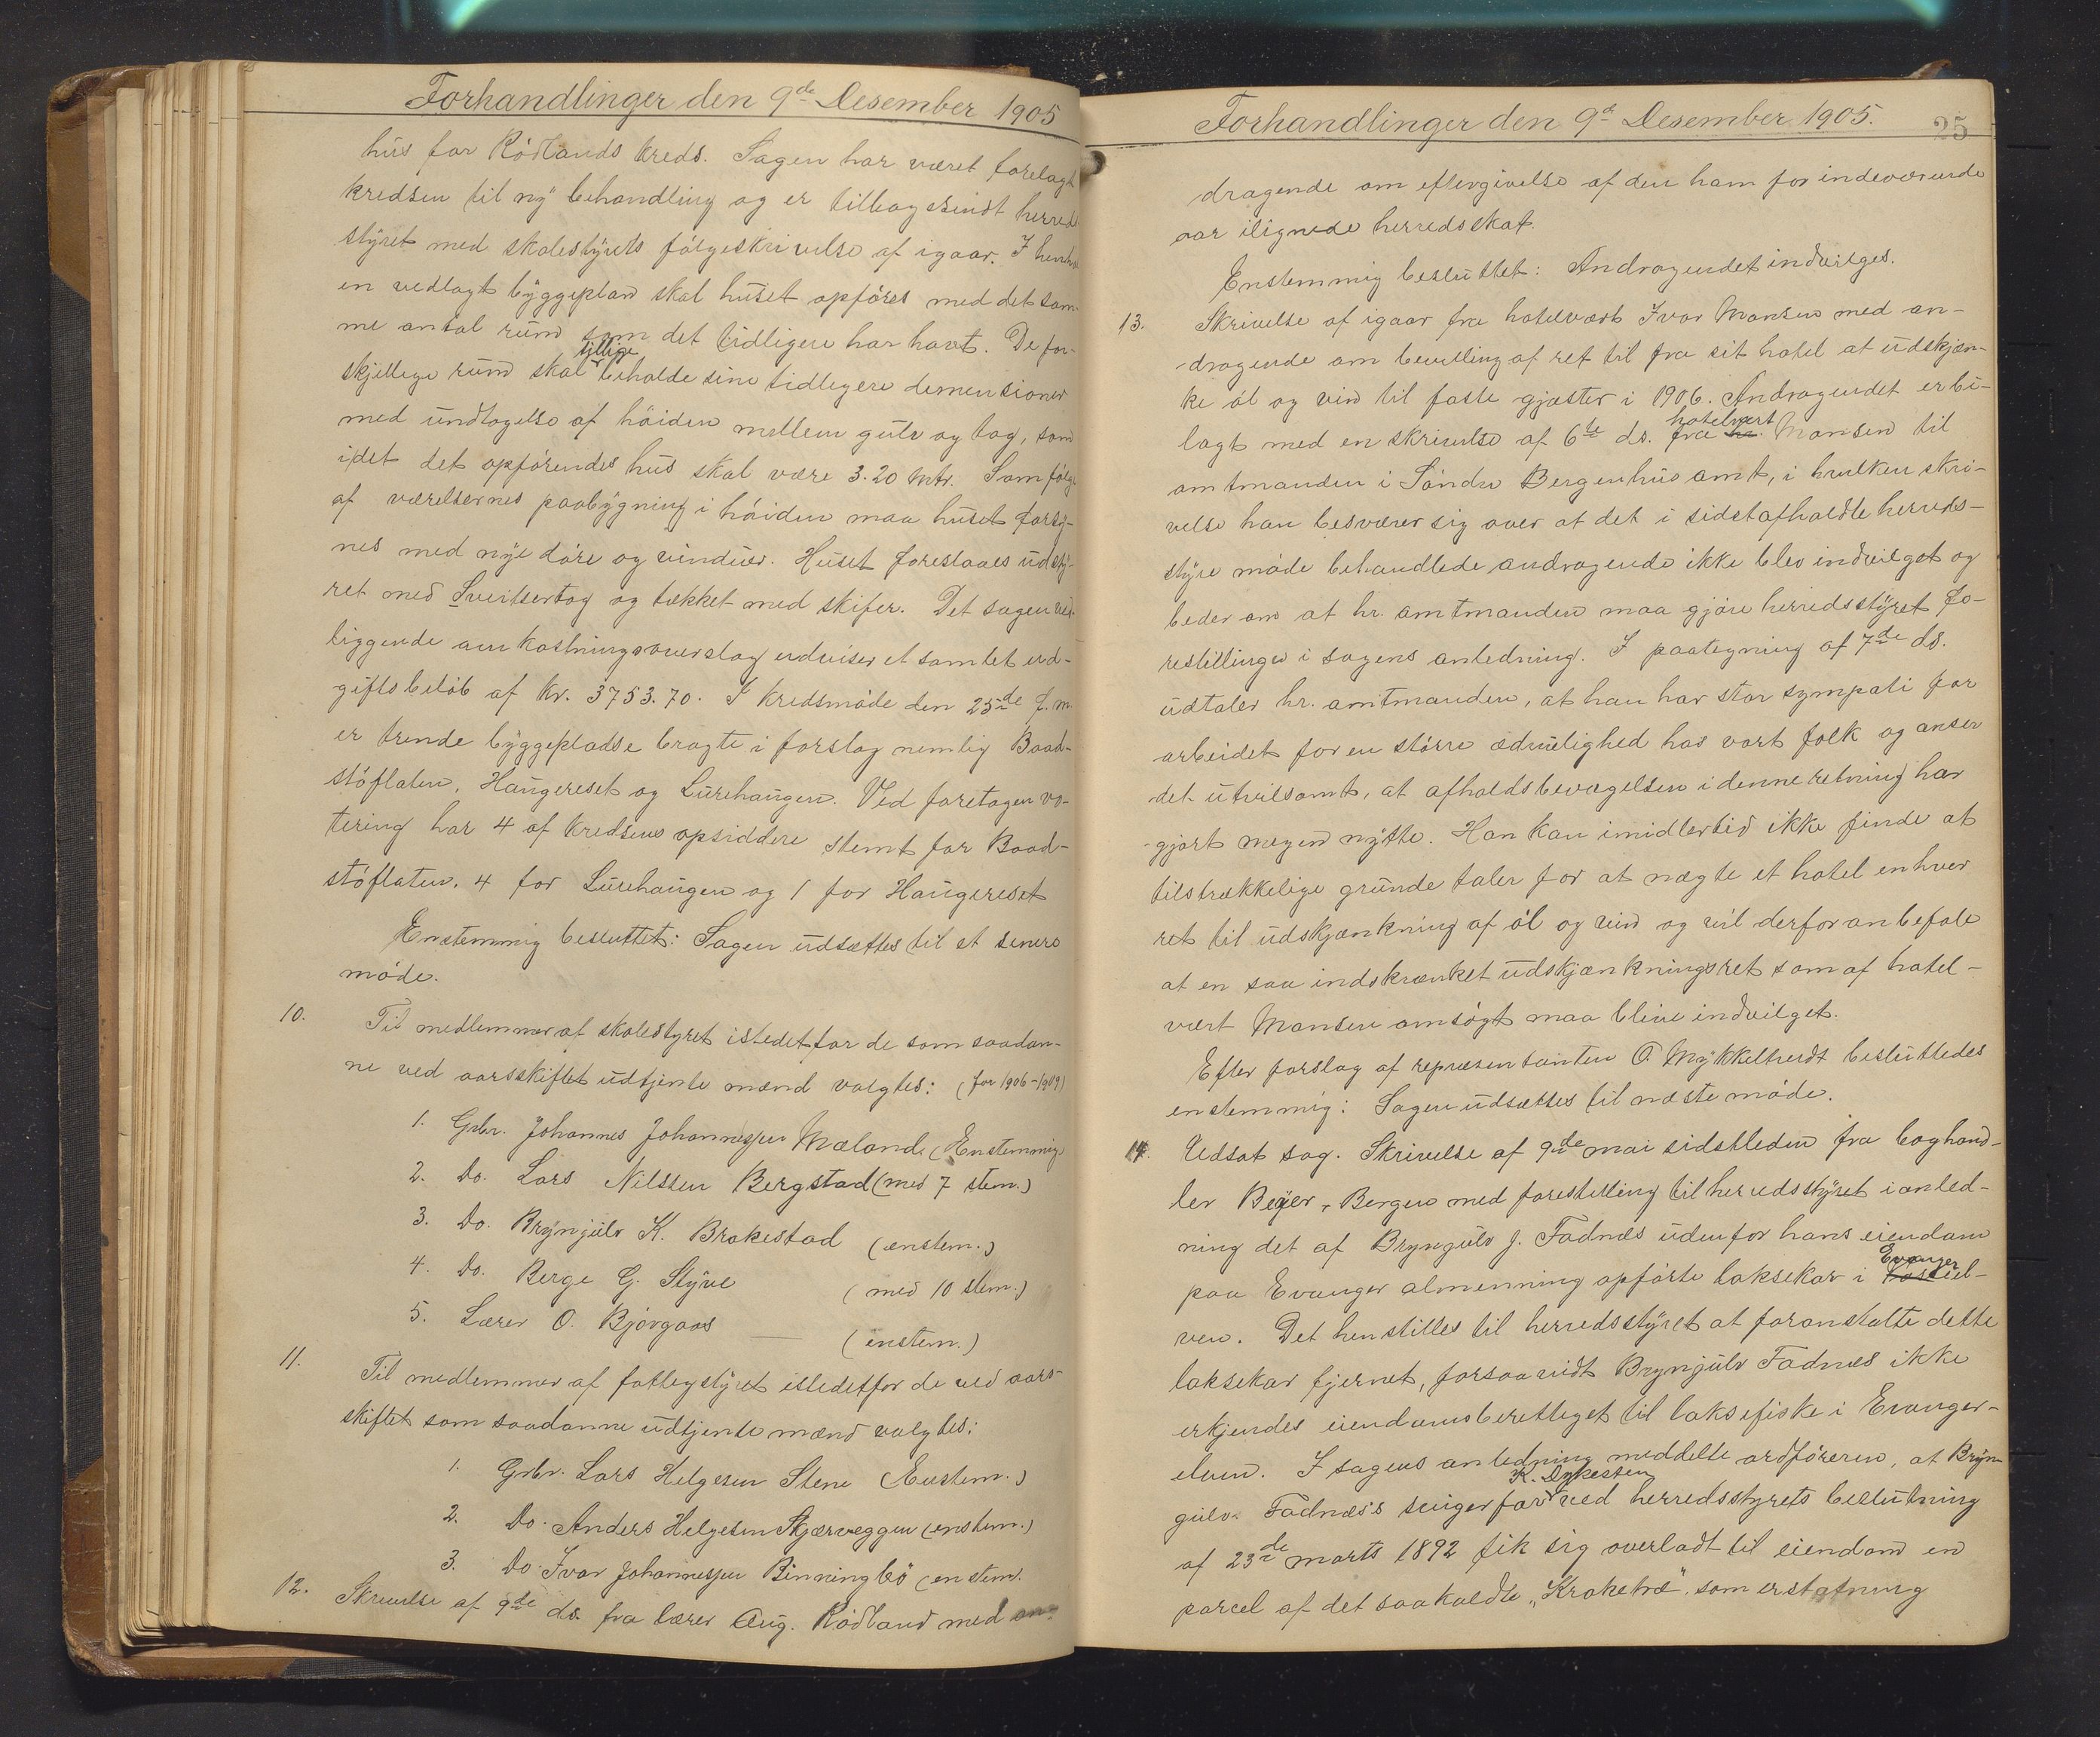 Forhandlinger den 9de Desember 1905
hus for Rödlands kreds. Sagen har været forelagt
kredsen til ny behandling og er tilbagesendt herreds
styret med skolestyrets fölgeskrivelse af igaar. I henhold
en vedlagt byggeplan skal huset opföres med det sam-
me antal rum som det tidligere har havt. De for-
skjellige rum skal tillige beholde sine tidligere demensioner
med undtagelse af höiden mellem gulv og tag, som
i det det opförendes hus skal være 3.20 mtr. Som fölge
af værelsernes paabygning i höiden maa huset forsy-
nes med nye döre og vinduer. Huset foreslaaes udsty-
ret med Sveitsertag og tækket med skifer. Det sagen ved-
liggende omkostningsoverslag udviser et samlet ud-
giftsbelöb af Kr. 3753.70. I kredsmöde den 25de f. m.
er trende byggepladse bragte i forslag nemlig Baad-
stöflaten, Haugereset og Lurehaugen. Ved foretagen vo-
tering har 4 af kredsens opsiddere stemt for Baad-
stöflaten, 4 for Lurehaugen og 1 for Haugereset
Enstemmig besluttet: Sagen udsættes til et senere
möde.
10. Til medlemmer af skolestyret istedetfor de som saadan-
ne ved aarsskiftet udtjente mænd valgtes: (for 1906-1909)
1. Grbr. Johannes Johannessen Mæland (Enstemmig)
2. Do. Lars Nilssen Bergstad (med 7 stem.)
3. Do. Brynjulv K. Brakestad (enstem.)
4. Do. Berge G. Styve (med 10 stem.)
5. Lærer O. Bjørgaas (enstem.)
11. Til medlemmer af fattigstyret istedetfor de ved aars-
skiftet som saadanne udtjente mænd valgtes:
1. Grbr. Lars Helgesen Stene (Enstem.)
2. Do. Anders Helgesen Skjærveggen (enstem.)
3. Do. Ivar Johannessen Binningbö (enstem.
12. Skrivelse af 9de ds. fra lærer Aug. Rödland med an-
Forhandlinger den 9de Desember 1905.
25
dragende om eftergivelse af den ham for indeværende
aar ilignede herredsskat.
Enstemmig besluttet: Andragendet indvilges.
13. Skrivelse af igaar fra hotelvært Ivar Monsen med an-
dragende om bevilling af ret til fra sit hotel at udskjæn-
ke öl og vin til faste gjæster i 1906. Andragendet er bi-
lagt med en skrivelse af 6te ds. fra hr. hotelvært Monsen til
amtmanden i Söndre Bergenhus amt, i hvilken skri-
velse han besværer sig over at det i sidstafholdte herreds-
styre möde behandlede andragende ikke blev indvilget og
beder om at hr. amtmanden maa gjöre herredsstyret fo-
restillinger i sagens anledning. I paategning af 7de ds.
udtaler hr. amtmanden, at han har stor sympati for
arbeidet for en större ædruelighed hos vort folk og anser
det utvilsomt, at afholdsbevægelsen i denne retning har
gjort megen nytte. Han kan imidlertid ikke finde at
tilstrækkelige grunde taler for at nægte et hotel enhver
ret til udskjænkning af öl og vin og vil derfor anbefale
at en saa indskrænket udskjænkningsret som af hotel-
vært Monsen omsögt maa blive indvilget.
Efter forslag af repræsentanten O. Mykkeltvedt besluttedes
enstemmig: Sagen udsættes til næste möde.
14. Udsat sag. Skrivelse af 9de mai sidstleden fra boghand-
ler Beyer, Bergen med forestilling til herredsstyret i anled-
ning det af Bryngulv J. Fadnæs udenfor hans eiendom
paa Evanger almenning opförte laksekar i Evanger-
ven. Det henstilles til herredsstyret at foranstalte dette
laksekar fjernet, forsaavidt Brynjulv Fadnæs ikke
erkjendes eiendomsberettiget til laksefiske i Evanger-
elven. I sagens anledning meddelte ordföreren, at Bryn-
gulv Fadnæs's svigerfar K. Dykesten ved herredsstyrets beslutning
af 23de marts 1892 fik sig overladt til eiendom en
parcel af det saakaldte "Kroketræ" som erstatning